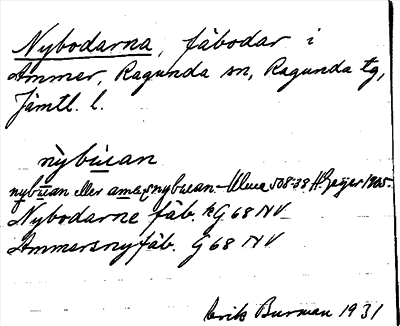 Nybodarna, fäbodar i
Ammer, Ragunda sn, Ragunda tg,
Jämtl. l.
nybúan
nybúan eller amesnybuan - 508-38 H. Geijer 1905.
Nybodarne fäb. kG 68 NV
Ammersnyfäb. G 68 NV
Erik Burman 1931